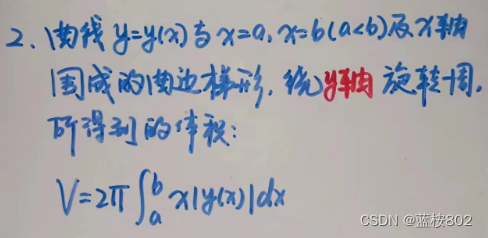 2、曲线y=y(x)与x=a, x=b(a<b)及x轴
围成的曲边梯形, 绕y轴旋转一周,
所得到的体积:
V=2π∫_a^b x|y(x)|dx
CSDN @蓝桉802